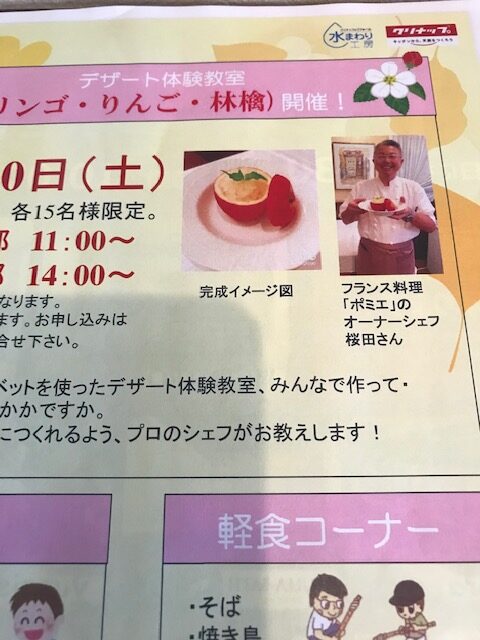 水まわり工房
クリナップ
キッチンから、笑顔をつくろう
デザート体験教室
リンゴ・りんご・林檎)開催！
0日(土)
各15名様限定。
部 11:00〜
部 14:00〜
なります。
ます。お申し込みは
合せ下さい。
完成イメージ図
フランス料理
「ポミエ」の
オーナーシェフ
桜田さん
ベットを使ったデザート体験教室、みんなで作って・
かかですか。
につくれるよう、プロのシェフがお教えします！
軽食コーナー
・そば
・焼き鳥